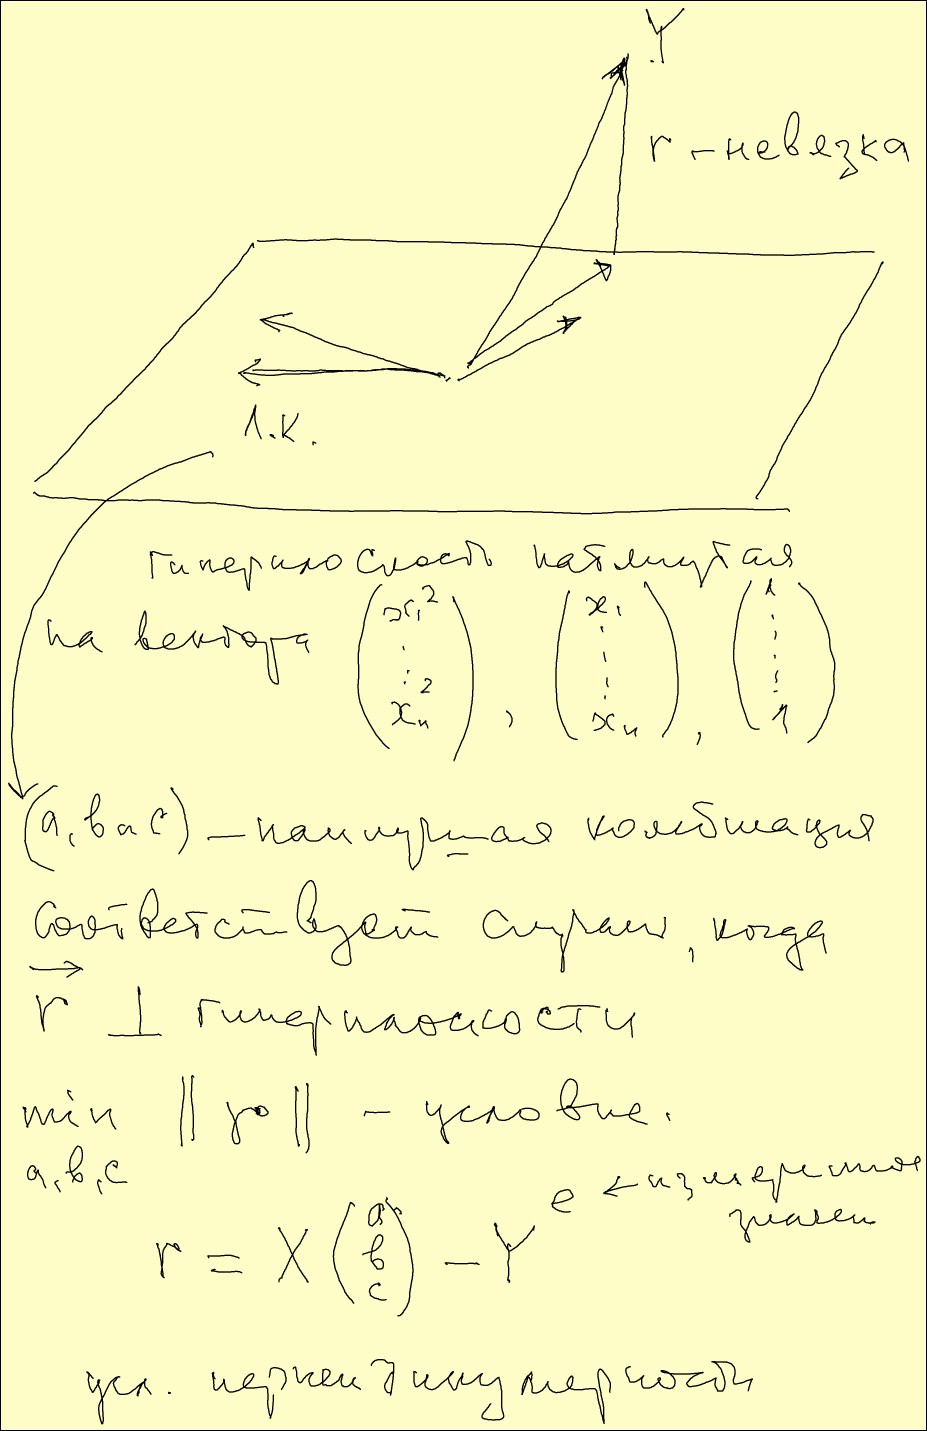 Y
r – невязка
л.к.
гиперплоскость натянутая
на вектора (x₁² ⋮ xₙ²), (x₁ ⋮ xₙ), (1 ⋮ 1)
(a, b и c) – наилучшая комбинация
соответствует случаю, когда
r⃗ ⊥ гиперплоскости
min ‖r‖ – условие.
a, b, c
r = X (a b c) – Yᵉ ← измеренное
значен
усл. перпендикулярности